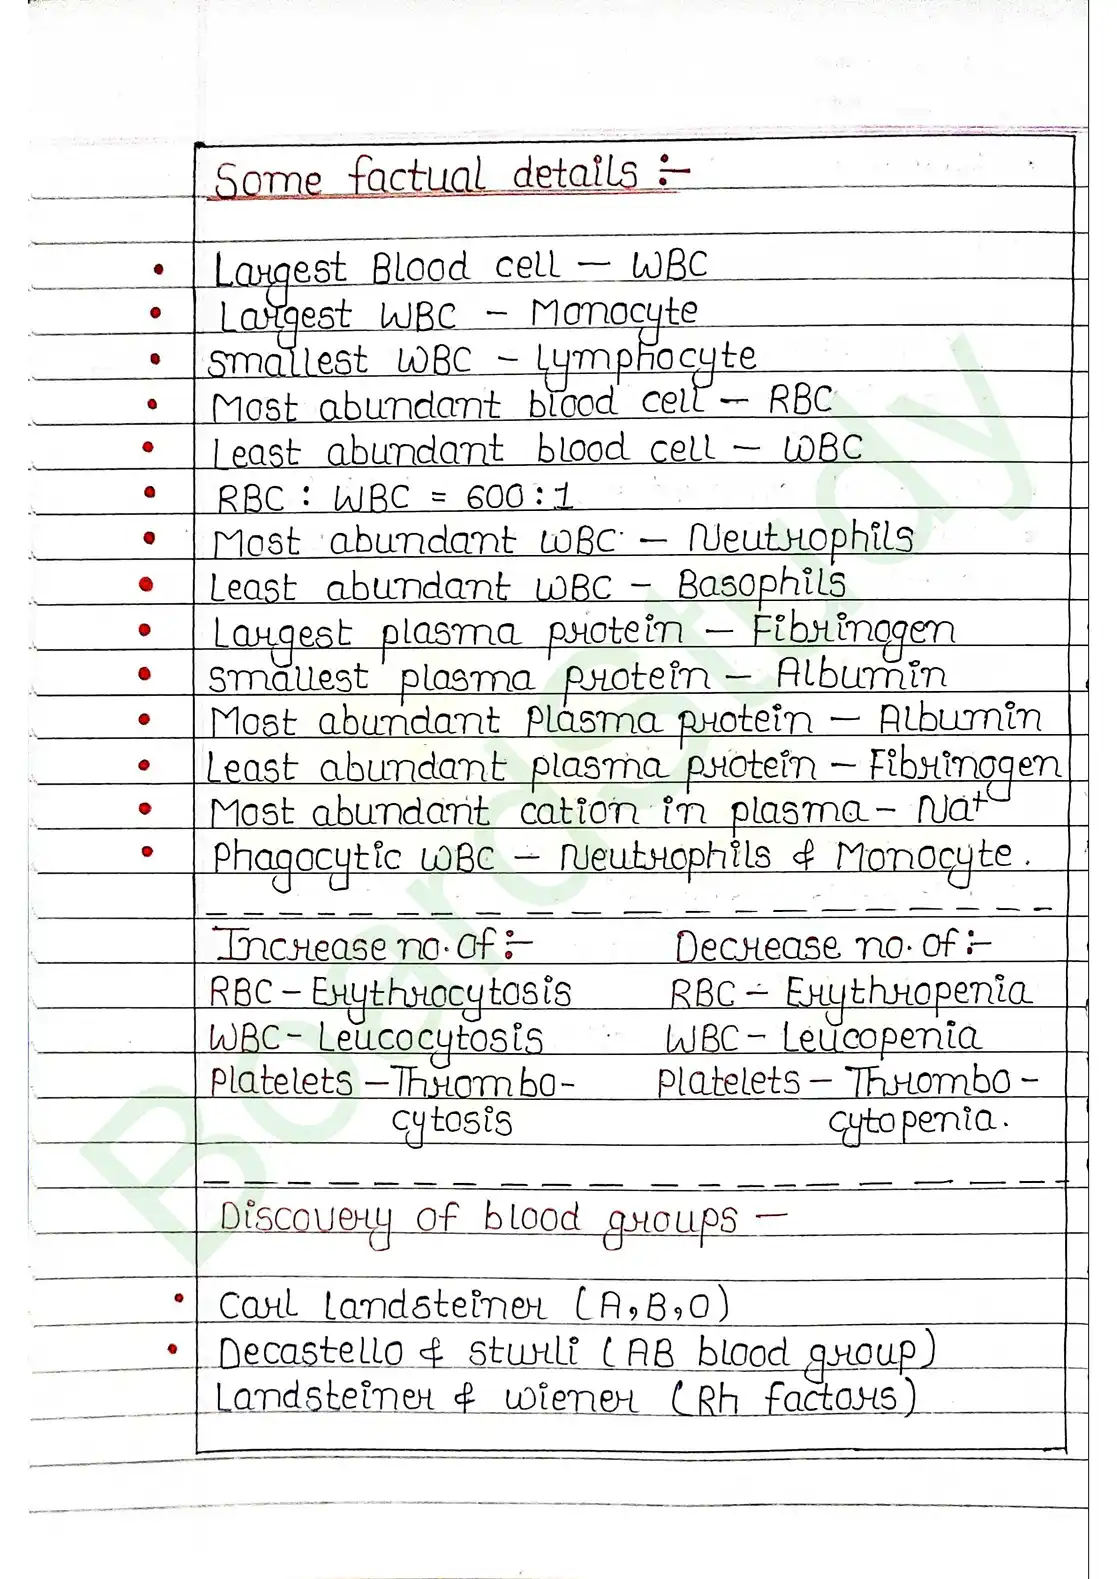 Some factual details :-
• Largest Blood cell – WBC
• Largest WBC – Monocyte
• smallest WBC – Lymphocyte
• Most abundant blood cell – RBC
• Least abundant blood cell – WBC
• RBC : WBC = 600:1
• Most abundant WBC – Neutrophils
• Least abundant WBC – Basophils
• Largest plasma protein – Fibrinogen
• smallest plasma protein – Albumin
• Most abundant Plasma protein – Albumin
• Least abundant plasma protein – Fibrinogen
• Most abundant cation in plasma – Na⁺
• Phagocytic WBC – Neutrophils & Monocyte.
Increase no. of :- Decrease no. of :-
RBC – Erythrocytosis RBC – Erythropenia
WBC – Leucocytosis WBC – Leucopenia
Platelets – Thrombo- Platelets – Thrombo-
cytosis cytopenia.
Discovery of blood groups –
• Carl Landsteiner (A,B,O)
• Decastello & sturli (AB blood group)
Landsteiner & wiener (Rh factors)
BoardStudy